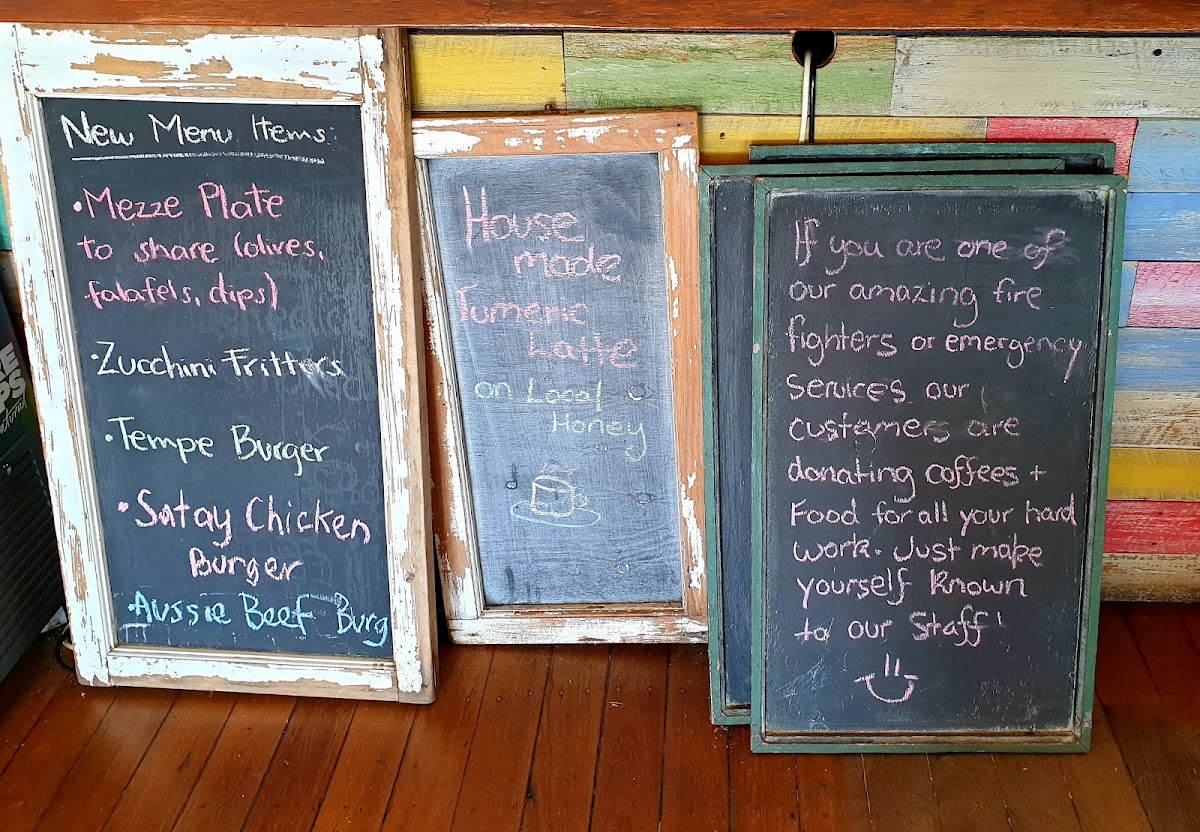 New Menu Items:
• Mezze Plate
to share (olives,
falafels, dips)
• Zucchini Fritters
• Tempe Burger
• Satay Chicken
Burger
• Aussie Beef Burg
House
made
Tumeric
Latte
on Local
Honey
If you are one of
our amazing fire
fighters or emergency
services our
customers are
donating coffees +
Food for all your hard
work. Just make
yourself known
to our staff!